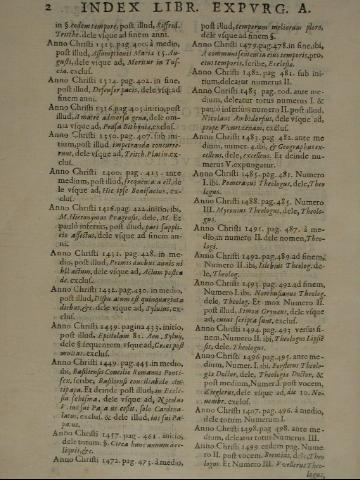 2 INDEX LIBR. EXPVRG. A.
in §. eodem tempore, post illud, Elfrid.
Teithe. dele vsque ad finem anni.
Anno Christi 1313. pag. 400. à medio,
post illud, Assumptionis Mariæ 15. Au-
gusti, dele vsque ad, Moritur in Tus-
cia. exclus.
Anno Christi 1324. pag. 402. in fine,
post illud, Defensor pacis, dele vsq; ad
finem anni.
Anno Christi 1326. pag. 403. initio, post
illud, Amatæ admorsa gena, dele om-
nia vsque ad, Prusa Bithyniæ, exclus.
Anno Christi 1350. pag. 407. sub ini-
tium, post illud, imperanda concurre-
runt, dele vsque ad, Teirch. Platin. ex-
clus.
Anno Christi 1400. pag. 413. ante
medium, post illud, de-
le vsque ad, Hic ipse Bonifacius, ex-
clus.
Anno Christi 1416. pag. 422. initio, ibi,
M. Hieronymus Pragensis, dele, M. Et
paulò inferius, post illud, pari suppli-
cio affectus, dele vsque ad finem an-
ni.
Anno Christi 1431. pag. 428. in me-
dio, post illud, Primis duobus annis ni-
hil actum, dele vsque ad, Actum postea
de. exclus.
Anno Christi 1432. pag. 430. in medio,
post illud, Dispu atum est quinquaginta
diebus, &c. dele vsque ad, Syluius, ex-
clus.
Anno Christi 1439. pagina 433. initio,
post illud, Epistolam 81. Aen. Syluij,
dele § sequentem vsque ad,
exclus.
Anno Christi 1449. pag. 445. in medio,
ibi, Basiliensis Concilij Romanus Ponti-
fex, scribe, Basiliensis conciliabuli An-
tipapa. Et deinde post illud, in Eccle-
sia schisma, dele vsque ad, Nicolao
V. iussus Papa esset, solo Cardina-
latu, exclus. & dele illud, iussus Pa-
pa.
Anno Christi 1457. pag. 461. initio,
dele totum. §. Circa hunc annum
&c.
Anno Christi 1472. pag. 473. à medio,
post illud, temporum meliorum spero,
dele vsque ad finem §.
Anno Christi 1479. pag. 478. in fine, ibi,
A communi omnium eius temporis, pro,
eius temporis, scribe, Ecclesia.
Anno Christi 1482. pag. 481. sub ini-
tium, deleatur numerus II.
Anno Christi 1483. pag. eod. ante me-
dium, deleatur totus numerus I. &
paulò inferius numero II. post illud,
Nicolaus Ambisdorfius, dele vsque ad,
prope Florentinam, exclus.
Anno Christi 1483. pag. 482. ante me
dium, numer. 4. ibi, & Geographus ex-
cellens, dele, excellens. Et deinde nu-
merus V. expungatur.
Anno Christi 1485. pag. 481. Numero
I. ibi, Pomeranus Theologus, dele, Theo
logus.
Anno Christi 1488. pag. 485. Numero
III. Myrenius Theologus, dele, Theolo-
gus.
Anno Christi 1491. pag. 487. à me-
dio, in numero II. dele nomen, Theo-
logi.
Anno Christi 1492. pag. 489. ad finem,
Numero II. ibi, Islebius Theolog. de-
le, Theolog.
Anno Christi 1493. pag. 492. ad finem,
Numero I. ibi, Noribusianus Theolog.
dele, Theolog. Et mox Numero II.
post illud, Simon Grynæus, dele vsque
ad, cuius scripta sunt, exclus.
Anno Christi 1494. pag. 493. versus fi-
nem, Numero II. ibi, Theologus Lipsiē
sis, dele, Theologus.
Anno Christi 1496. pag. 495. ante me-
dium, Numer. I. ibi, Forsterus Theolo-
giæ Doctor, dele, Theologiæ Doctor, &
post medium, Numer. I. post vocem,
dele vsque ad, die 10. No-
uembr. exclus.
Anno Christi 1497. pag. 496. à medio,
dele totum Numerum I.
Anno Christi 1498. pag. 498. ante me-
dium, deleatur totus Numerus III.
Anno Christi 1499. pag. eadem. Nume-
ro II. post vocem, Brentius, dele, Theo
logus. Et Numero III. Theo-
logus,